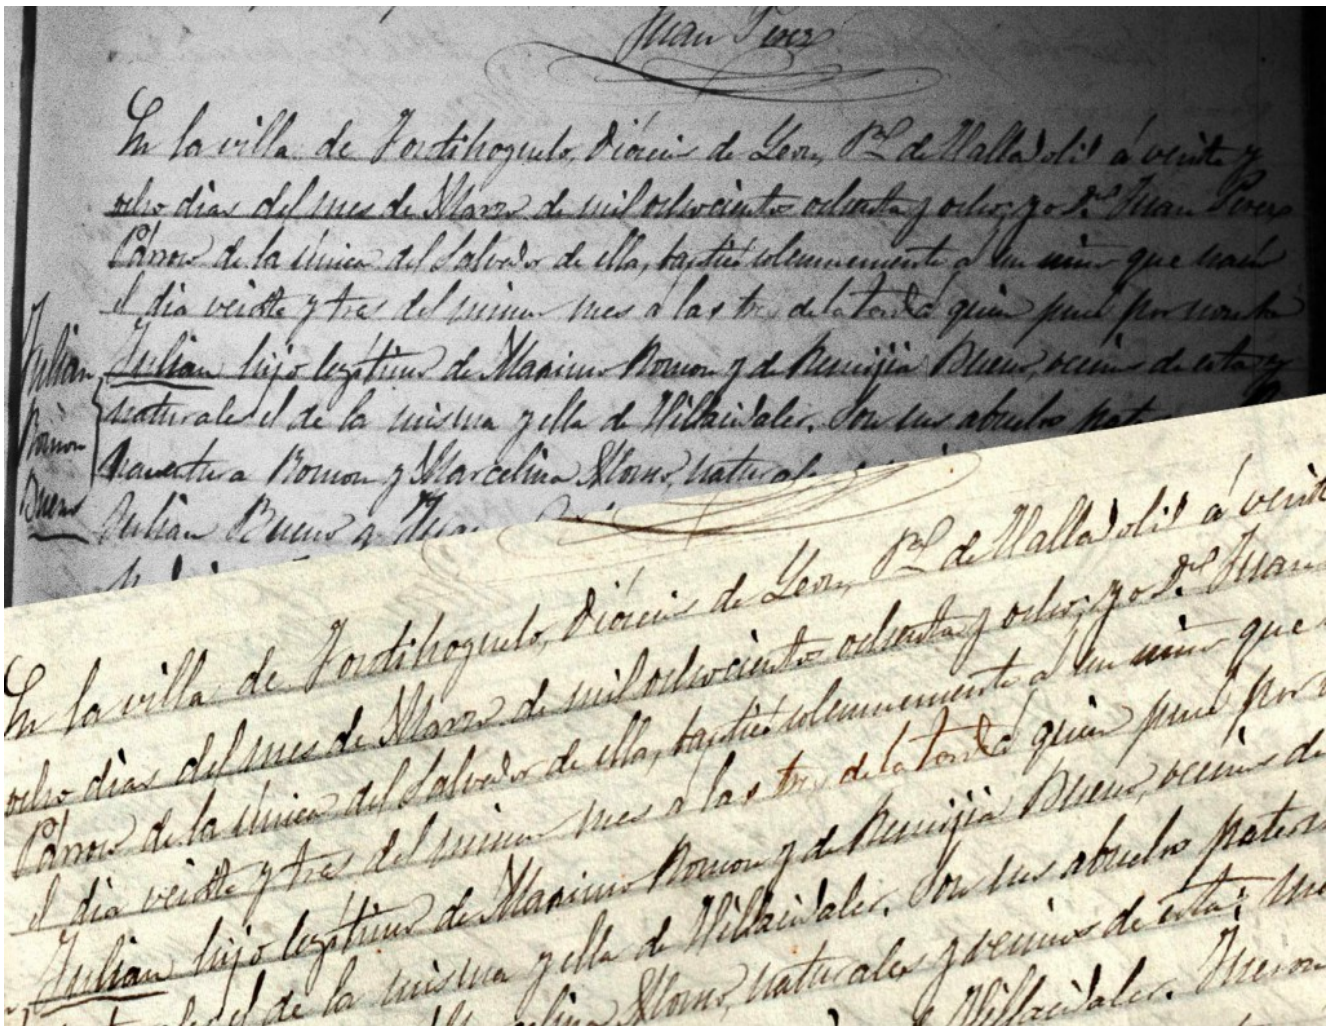 Juan Perez
En la villa de Fontihoyuelo, Diócesis de Leon, P.al de Valladolid á veinte y
ocho dias del mes de Marzo de mil ochocientos ochenta y ocho; yo D.n Juan Perez
Párroco de la única del Salvador de ella, bauticé solemnemente a un niño que nació
el dia veinte y tres del mismo mes a las tres de la tarde á quien puse por nombre
Julian hijo legítimo de Maximo Román y de Remigia Bueno, vecinos de esta y
naturales el de la misma y ella de Villacidaler. Son sus abuelos
Román y Marcelina Alonso, naturales
Julian Bueno y
Julian
Román
Bueno
En la villa de Fontihoyuelo, Diócesis de Leon, P.al de Valladolid á veinte
ocho dias del mes de Marzo de mil ochocientos ochenta y ocho; yo D.n Juan
Párroco de la única del Salvador de ella, bauticé solemnemente a un niño que
el dia veinte y tres del mismo mes a las tres de la tarde á quien puse por
Julian hijo legítimo de Maximo Román y de Remigia Bueno, vecinos de
el de la misma y ella de Villacidaler. Son sus abuelos
Alonso, naturales y vecinos de esta;
Villacidaler.